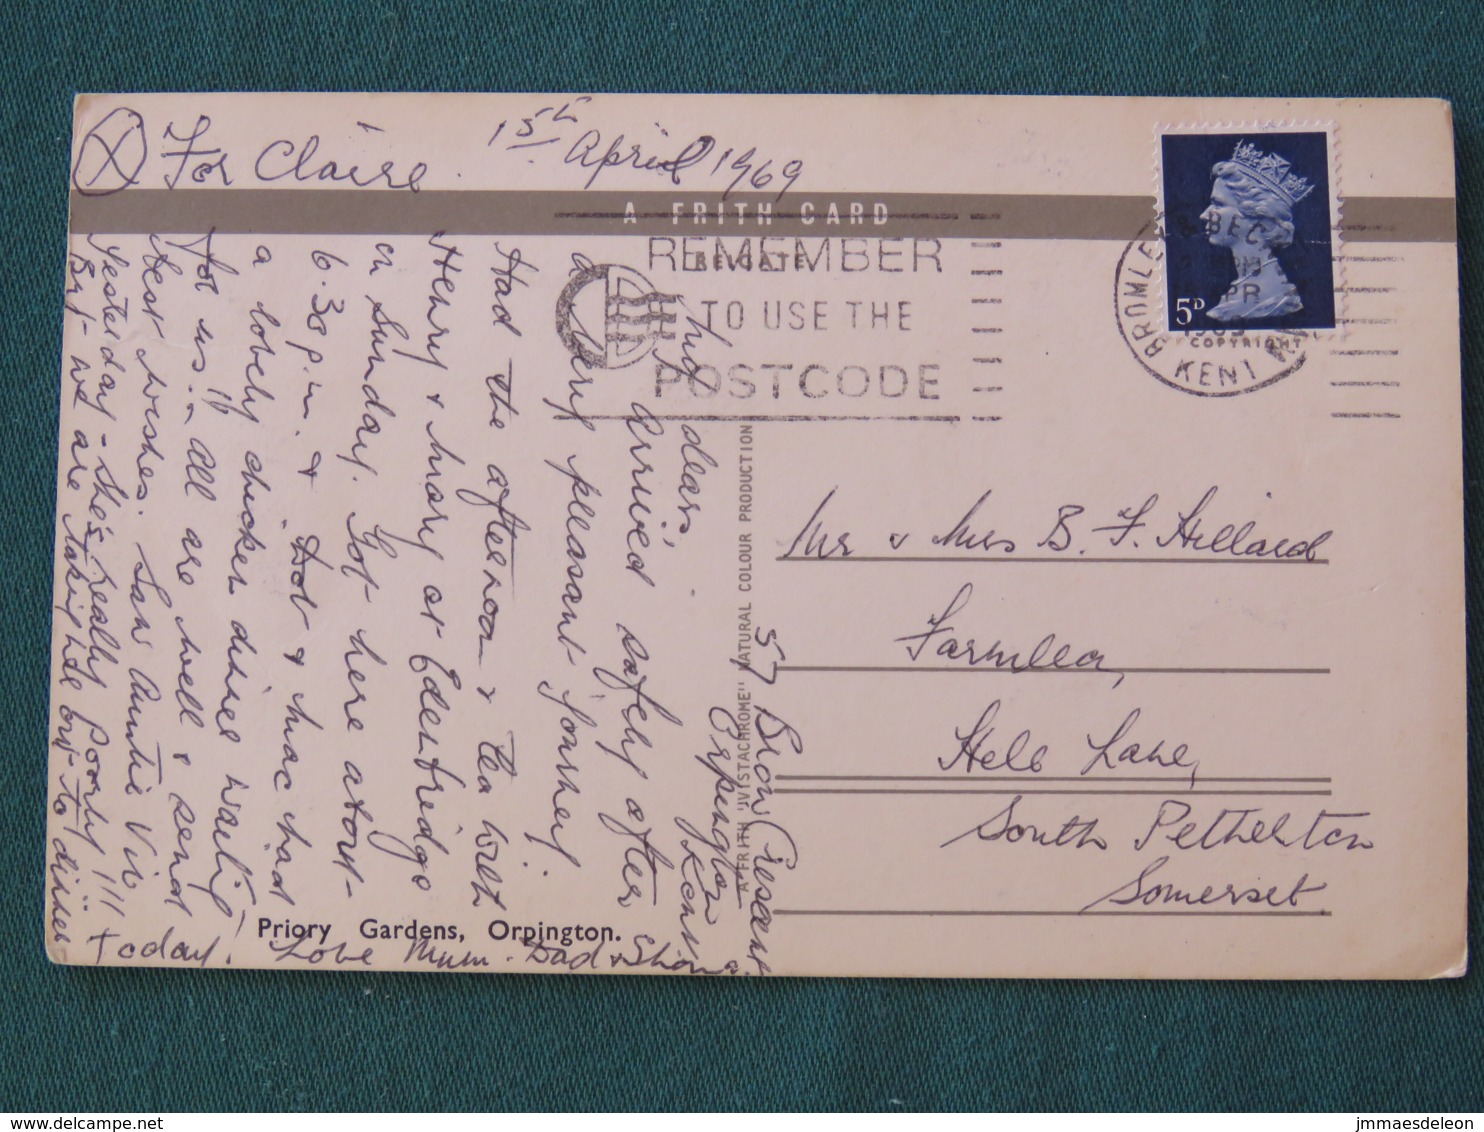 (X) For Claire. 15th April 1969
A FRITH CARD
REIGATE
REMEMBER
TO USE THE
POSTCODE
BROMLEY & BEC
PM
APR
1969
KENT
5P
COPYRIGHT
57 Brow Crescent
Orpington
Kent
My dears,
Arrived safely after
a very pleasant journey.
Had the afternoon & tea with
Henry & Mary at Edenbridge
on Sunday. Got here about
6.30 p.m. & Dot & Mac had
a lovely chicken dinner waiting
for us. All are well & send
best wishes. Saw Auntie Vib
yesterday - She's really poorly !!!
But we are taking her out to dinner
today. Love Mum. Dad & Shona
Priory Gardens, Orpington.
A FRITH "VISTACHROME" NATURAL COLOUR PRODUCTION
Mr & Mrs B. F. Hillard
Farmlea,
Hele Lane,
South Petherton
Somerset.
www.delcampe.net
jmmaesdeleon